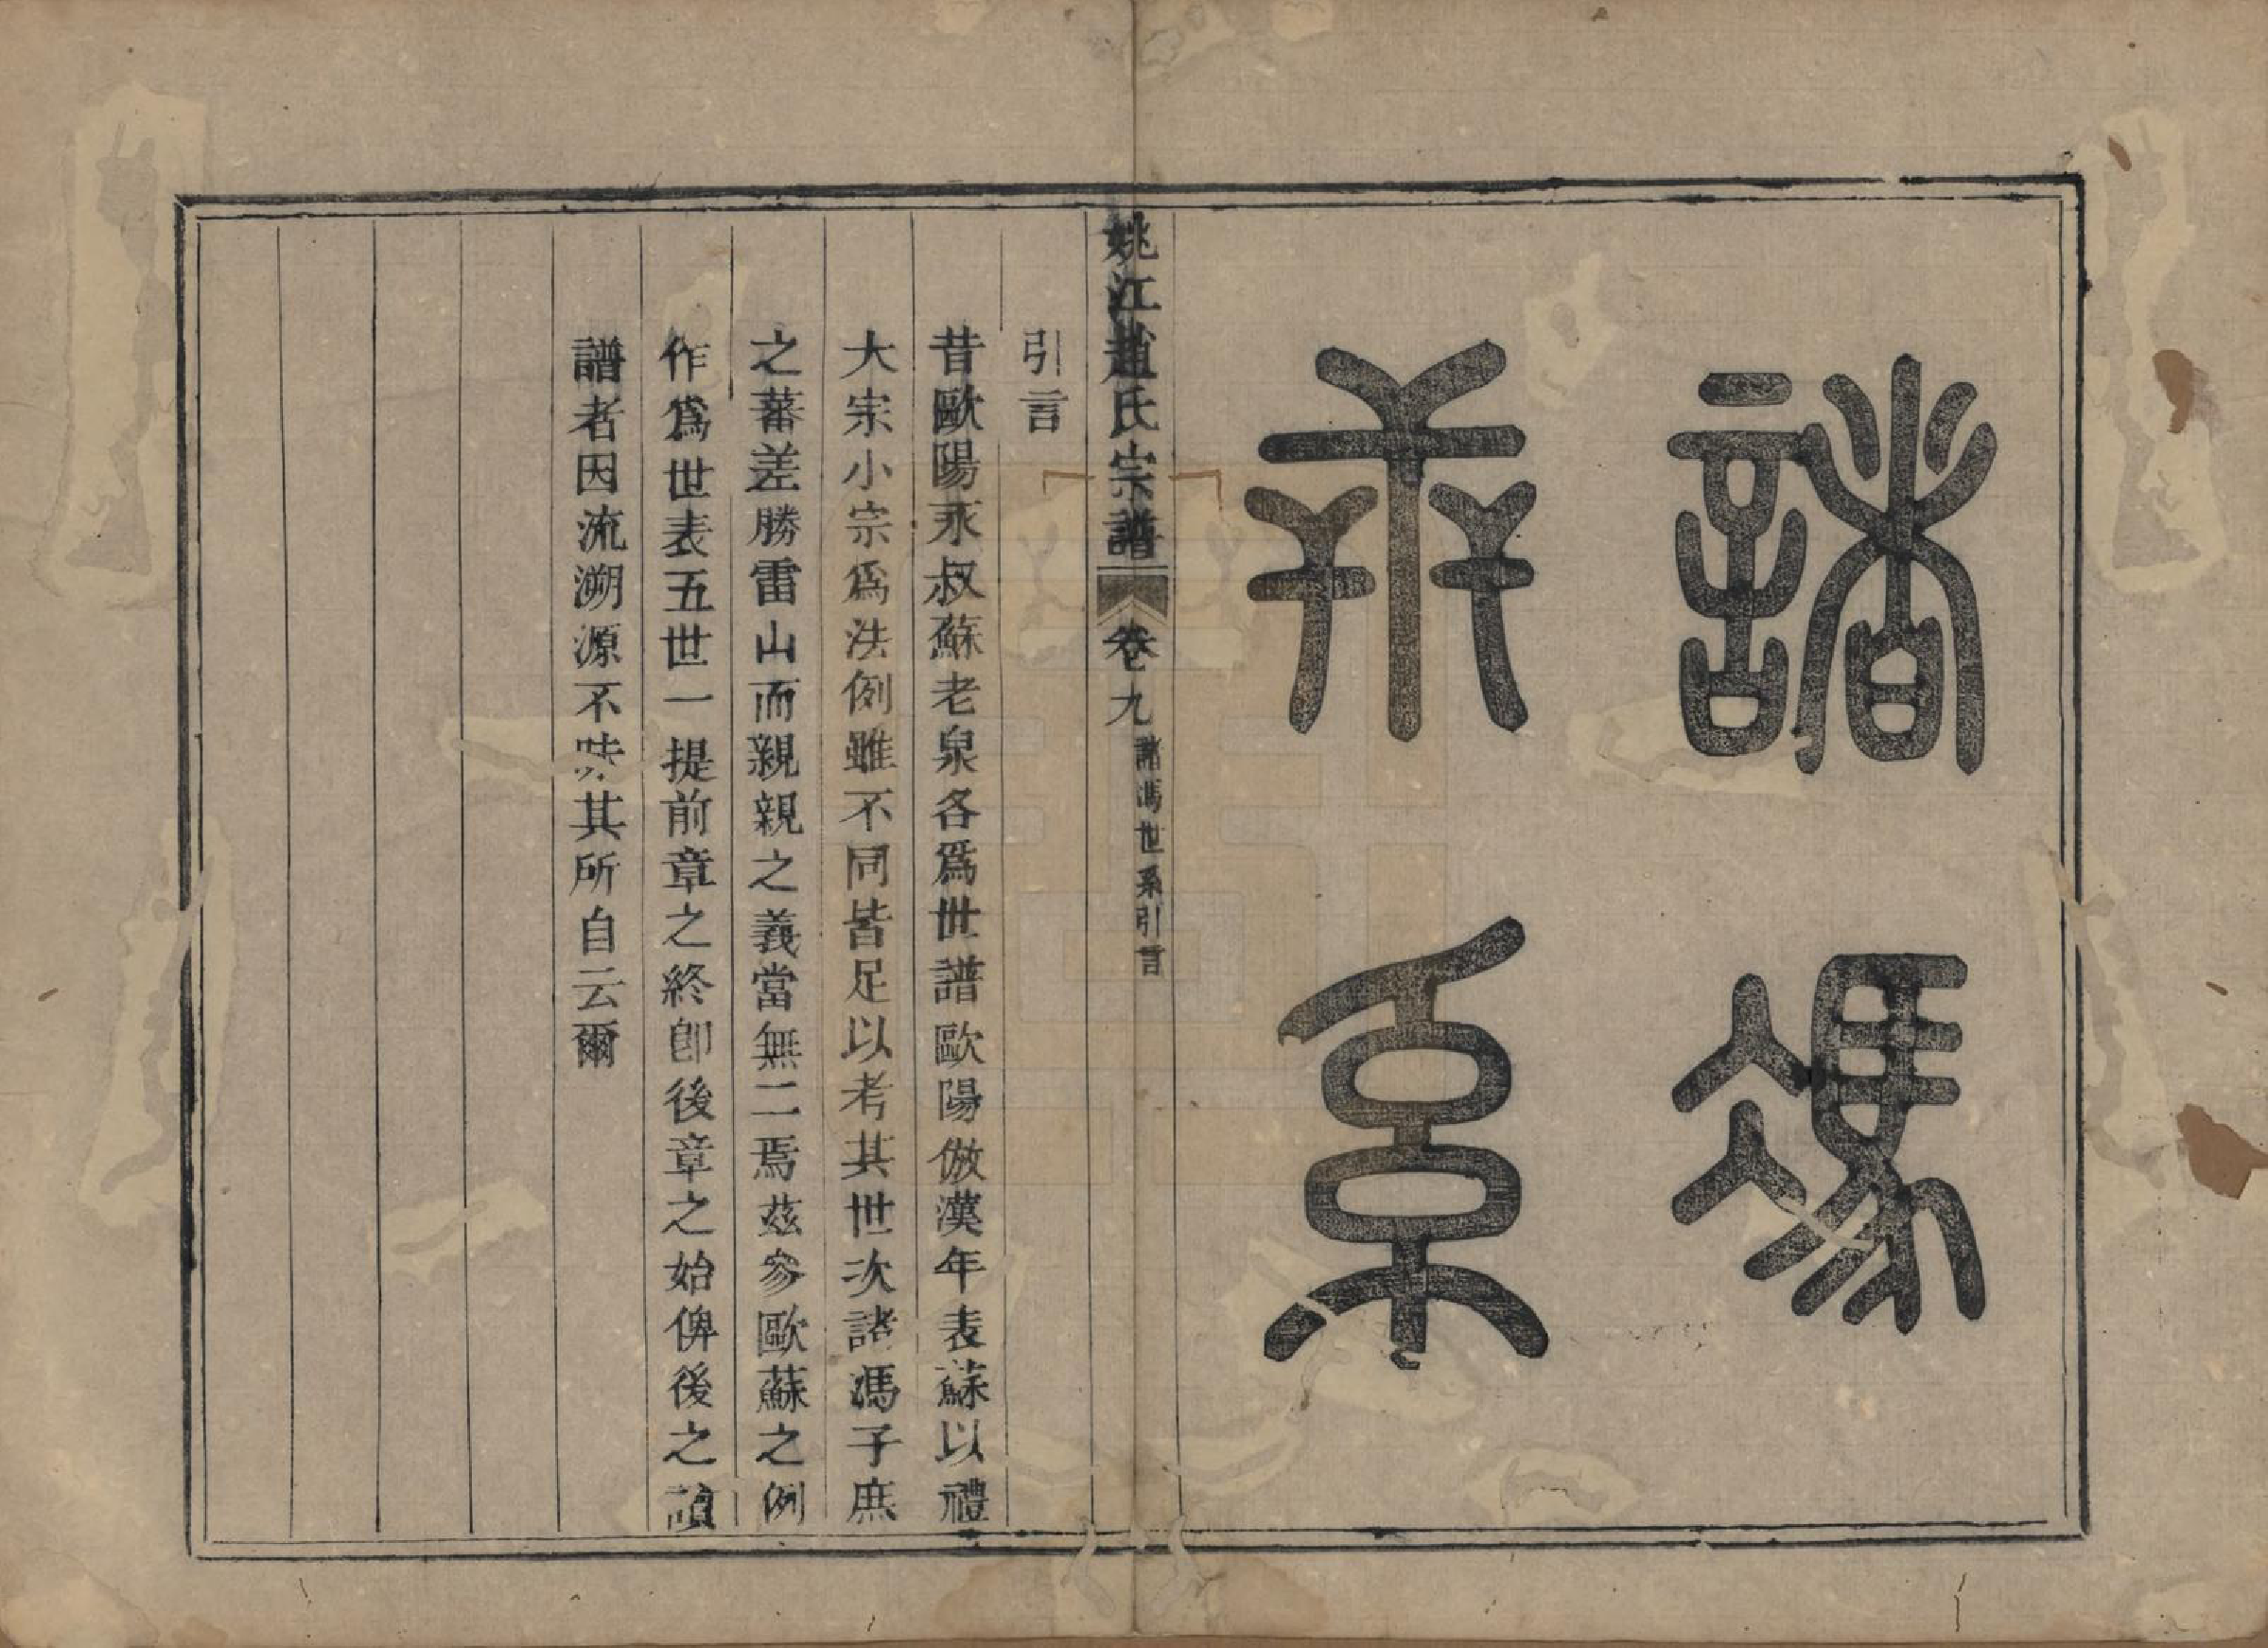 諸馮
世系
姚江趙氏宗譜 卷九 諸馮世系引言
引言
昔歐陽永叔蘇老泉各爲世譜歐陽倣漢年表蘇以禮
大宗小宗爲法例雖不同皆足以考其世次諸馮子庶
之蕃差勝雷山而親親之義當無二焉茲參歐蘇之例
作爲世表五世一提前章之終卽後章之始俾後之讀
譜者因流溯源不昧其所自云爾